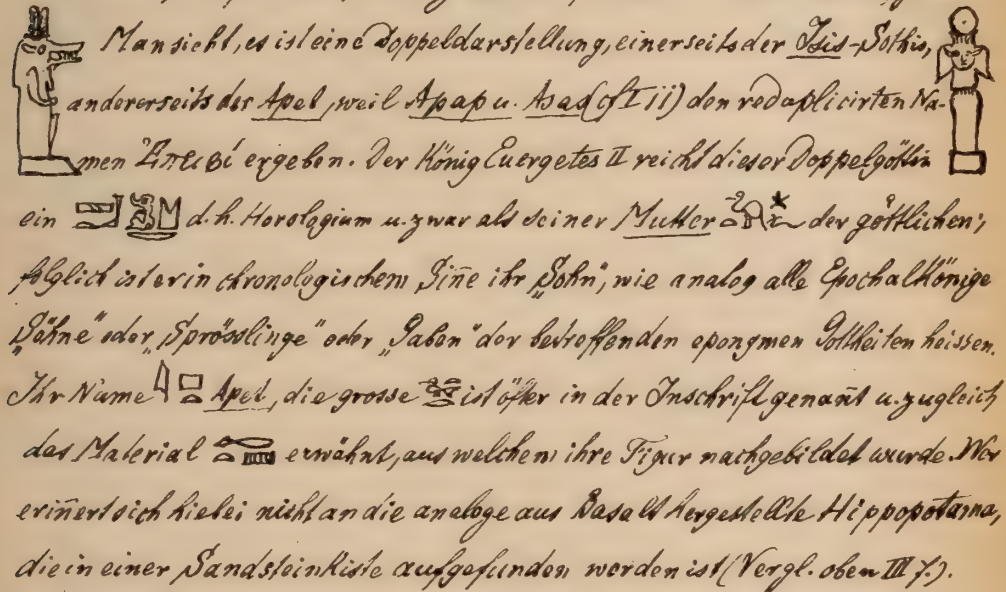 Man sieht, es ist eine Doppeldarstellung, einerseits der Isis-Sothis,
andererseits der Apet, weil Apap u. Asad (cf I jj) den reduplicirten Na-
men Ἐπειφί ergeben. Der König Euergetes II reicht dieser Doppelgöttin
ein d. h. Horologium u. zwar als seiner Mutter der göttlichen;
folglich ist er in chronologischem Siñe ihr „Sohn“, wie analog alle Epochalkönige
„Söhne“ oder „Sprösslinge“ oder „Gaben“ der betreffenden eponymen Gottheiten heissen.
Ihr Name Apet, die grosse ist öfter in der Inschrift genañt u. zugleich
das Material erwähnt, aus welchem ihre Figur nachgebildet wurde. Wer
eriñert sich hiebei nicht an die analoge aus Basalt hergestellte Hippopotama,
die in einer Sandsteinkiste aufgefunden worden ist (Vergl. oben III 7.).